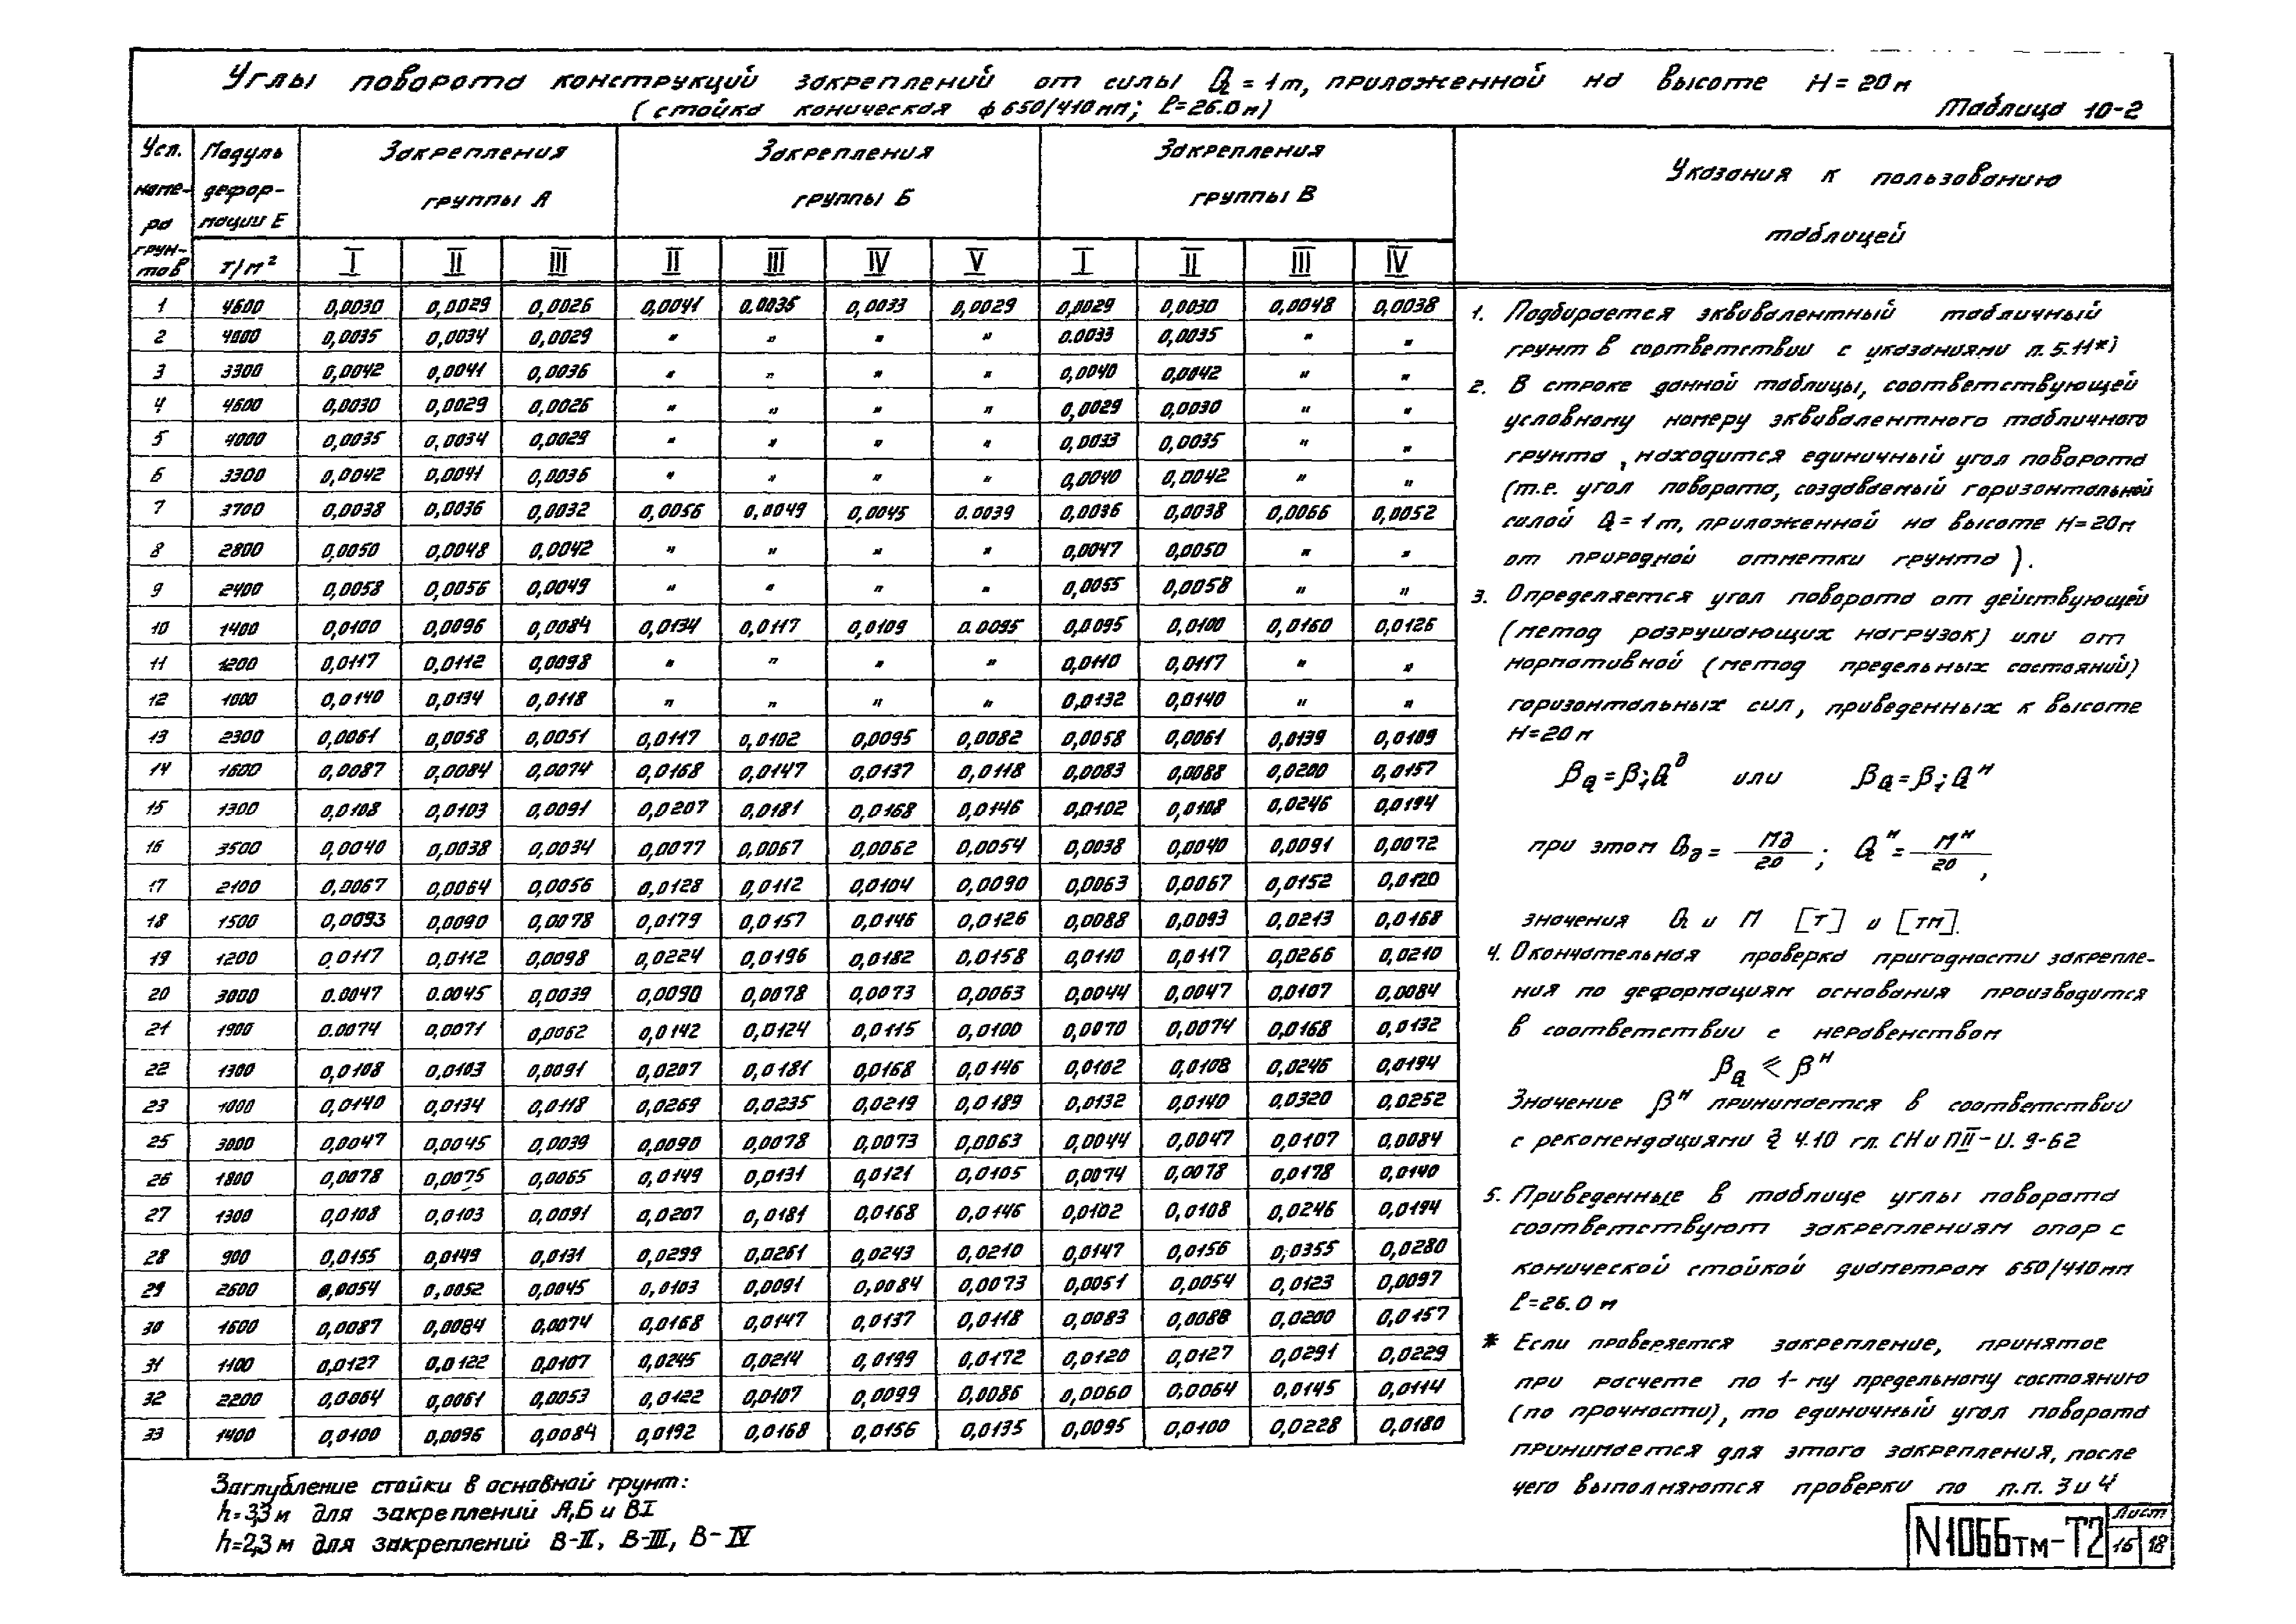 Углы поворота конструкций закреплений от силы Q = 1т, приложенной на высоте H = 20 м
(стойка коническая ф 650/410мм; ℓ=26.0 м)
Таблица 10-2
Усл. номе- ра грун- тов
Модуль дефор- мации E
Т/м²
Закрепления группы А
Закрепления группы Б
Закрепления группы В
I II III II III IV V I II III IV
1 4600 0,0030 0,0029 0,0026 0,0041 0.0035 0,0033 0,0029 0,0029 0,0030 0,0048 0,0038
2 4000 0,0035 0,0034 0,0029 " " " " 0.0033 0,0035 " "
3 3300 0,0042 0,0041 0,0036 " " " " 0,0040 0,0042 " "
4 4600 0,0030 0,0029 0,0026 " " " " 0,0029 0,0030 " "
5 4000 0,0035 0,0034 0,0029 " " " " 0,0033 0,0035 " "
6 3300 0,0042 0,0041 0,0036 " " " " 0,0040 0,0042 " "
7 3700 0,0038 0,0036 0,0032 0,0056 0,0049 0,0045 0.0039 0,0036 0,0038 0,0066 0,0052
8 2800 0,0050 0,0048 0,0042 " " " " 0,0047 0,0050 " "
9 2400 0,0058 0,0056 0,0049 " " " " 0,0055 0,0058 " "
10 1400 0,0100 0,0096 0,0084 0,0134 0,0117 0,0109 0.0095 0,0095 0,0100 0,0160 0,0126
11 1200 0,0117 0,0112 0,0098 " " " " 0,0110 0,0117 " "
12 1000 0,0140 0,0134 0,0118 " " " " 0,0132 0,0140 " "
13 2300 0,0061 0,0058 0,0051 0,0117 0,0102 0,0095 0,0082 0,0058 0,0061 0,0139 0,0109
14 1600 0,0087 0,0084 0,0074 0,0168 0,0147 0,0137 0,0118 0,0083 0,0088 0,0200 0,0157
15 1300 0,0108 0,0103 0,0091 0,0207 0,0181 0,0168 0,0146 0,0102 0,0108 0,0246 0,0194
16 3500 0,0040 0,0038 0,0034 0,0077 0,0067 0,0062 0,0054 0,0038 0,0040 0,0091 0,0072
17 2100 0,0067 0,0064 0,0056 0,0128 0,0112 0,0104 0,0090 0,0063 0,0067 0,0152 0,0120
18 1500 0,0093 0,0090 0,0078 0,0179 0,0157 0,0146 0,0126 0,0088 0,0093 0,0213 0,0168
19 1200 0,0117 0,0112 0,0098 0,0224 0,0196 0,0182 0,0158 0,0110 0,0117 0,0266 0,0210
20 3000 0.0047 0.0045 0,0039 0,0090 0,0078 0,0073 0,0063 0,0044 0,0047 0,0107 0,0084
21 1900 0.0074 0,0071 0,0062 0,0142 0,0124 0,0115 0,0100 0,0070 0,0074 0,0168 0,0132
22 1300 0,0108 0,0103 0,0091 0,0207 0,0181 0,0168 0,0146 0,0102 0,0108 0,0246 0,0194
23 1000 0,0140 0,0134 0,0118 0,0269 0,0235 0,0219 0,0189 0,0132 0,0140 0,0320 0,0252
25 3000 0,0047 0,0045 0,0039 0,0090 0,0078 0,0073 0,0063 0,0044 0,0047 0,0107 0,0084
26 1800 0,0078 0,0075 0,0065 0,0149 0,0131 0,0121 0,0105 0,0074 0,0078 0,0178 0,0140
27 1300 0,0108 0,0103 0,0091 0,0207 0,0181 0,0168 0,0146 0,0102 0,0108 0,0246 0,0194
28 900 0,0155 0,0149 0,0131 0,0299 0,0261 0,0243 0,0210 0,0147 0,0156 0,0355 0,0280
29 2600 0,0054 0,0052 0,0045 0,0103 0,0091 0,0084 0,0073 0,0051 0,0054 0,0123 0,0097
30 1600 0,0087 0,0084 0,0074 0,0168 0,0147 0,0137 0,0118 0,0083 0,0088 0,0200 0,0157
31 1100 0,0127 0,0122 0,0107 0,0245 0,0214 0,0199 0,0172 0,0120 0,0127 0,0291 0,0229
32 2200 0,0064 0,0061 0,0053 0,0122 0,0107 0,0099 0,0086 0,0060 0,0064 0,0145 0,0114
33 1400 0,0100 0,0096 0,0084 0,0192 0,0168 0,0156 0,0135 0,0095 0,0100 0,0228 0,0180
Заглубление стойки в основной грунт:
h=3,3 м для закреплений А,Б и ВI
h=2,3 м для закреплений В-II, В-III, В-IV
Указания к пользованию
таблицей
1. Подбирается эквивалентный табличный
грунт в соответствии с указаниями п.5.11*)
2. В строке данной таблицы, соответствующей
условному номеру эквивалентного табличного
грунта, находится единичный угол поворота
(т.е. угол поворота, создаваемый горизонтальной
силой Q = 1т, приложенной на высоте H=20м
от природной отметки грунта).
3. Определяется угол поворота от действующей
(метод разрушающих нагрузок) или от
нормативной (метод предельных состояний)
горизонтальных сил, приведенных к высоте
H=20 м
βQ = βi Qд или βQ = βi Qн
при этом Qд = Mд/20 ; Qн = Mн/20 ,
значения Q и М [Т] и [тм].
4. Окончательная проверка пригодности закрепле-
ния по деформациям основания производится
в соответствии с неравенством
βQ ≤ βн
Значение βн принимается в соответствии
с рекомендациями § 4.10 гл. СНиПII-И. 9-62
5. Приведенные в таблице углы поворота
соответствуют закреплениям опор с
конической стойкой диаметром 650/410мм
ℓ=26.0 м
* Если проверяется закрепление, принятое
при расчете по 1-му предельному состоянию
(по прочности), то единичный угол поворота
принимается для этого закрепления, после
чего выполняются проверки по п.п. 3 и 4
N1066тм-Т2
Лист
16 18